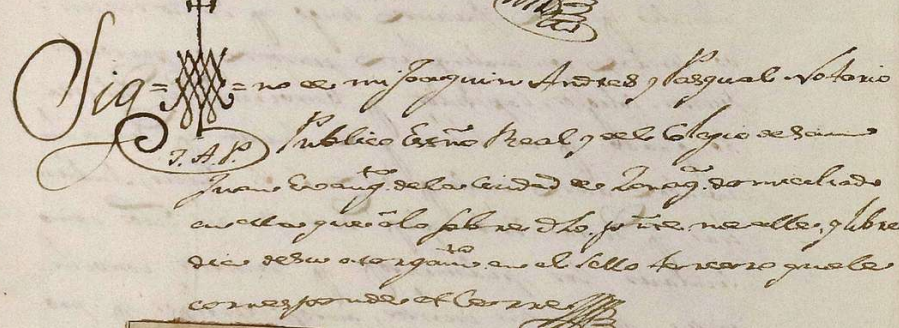 Sig=no de mi Joaquin Andres y Pasqual Notario
J. A. P. Publico Essno Real y del Colegio de San
Juan Evangta. de la Ciudad de Zaraga. domiciliado
en ella que a lo sobre dho. pnte. me alle, y libre
dia de su otorgamto. en el sello tercero que le
corresponde et Cerre